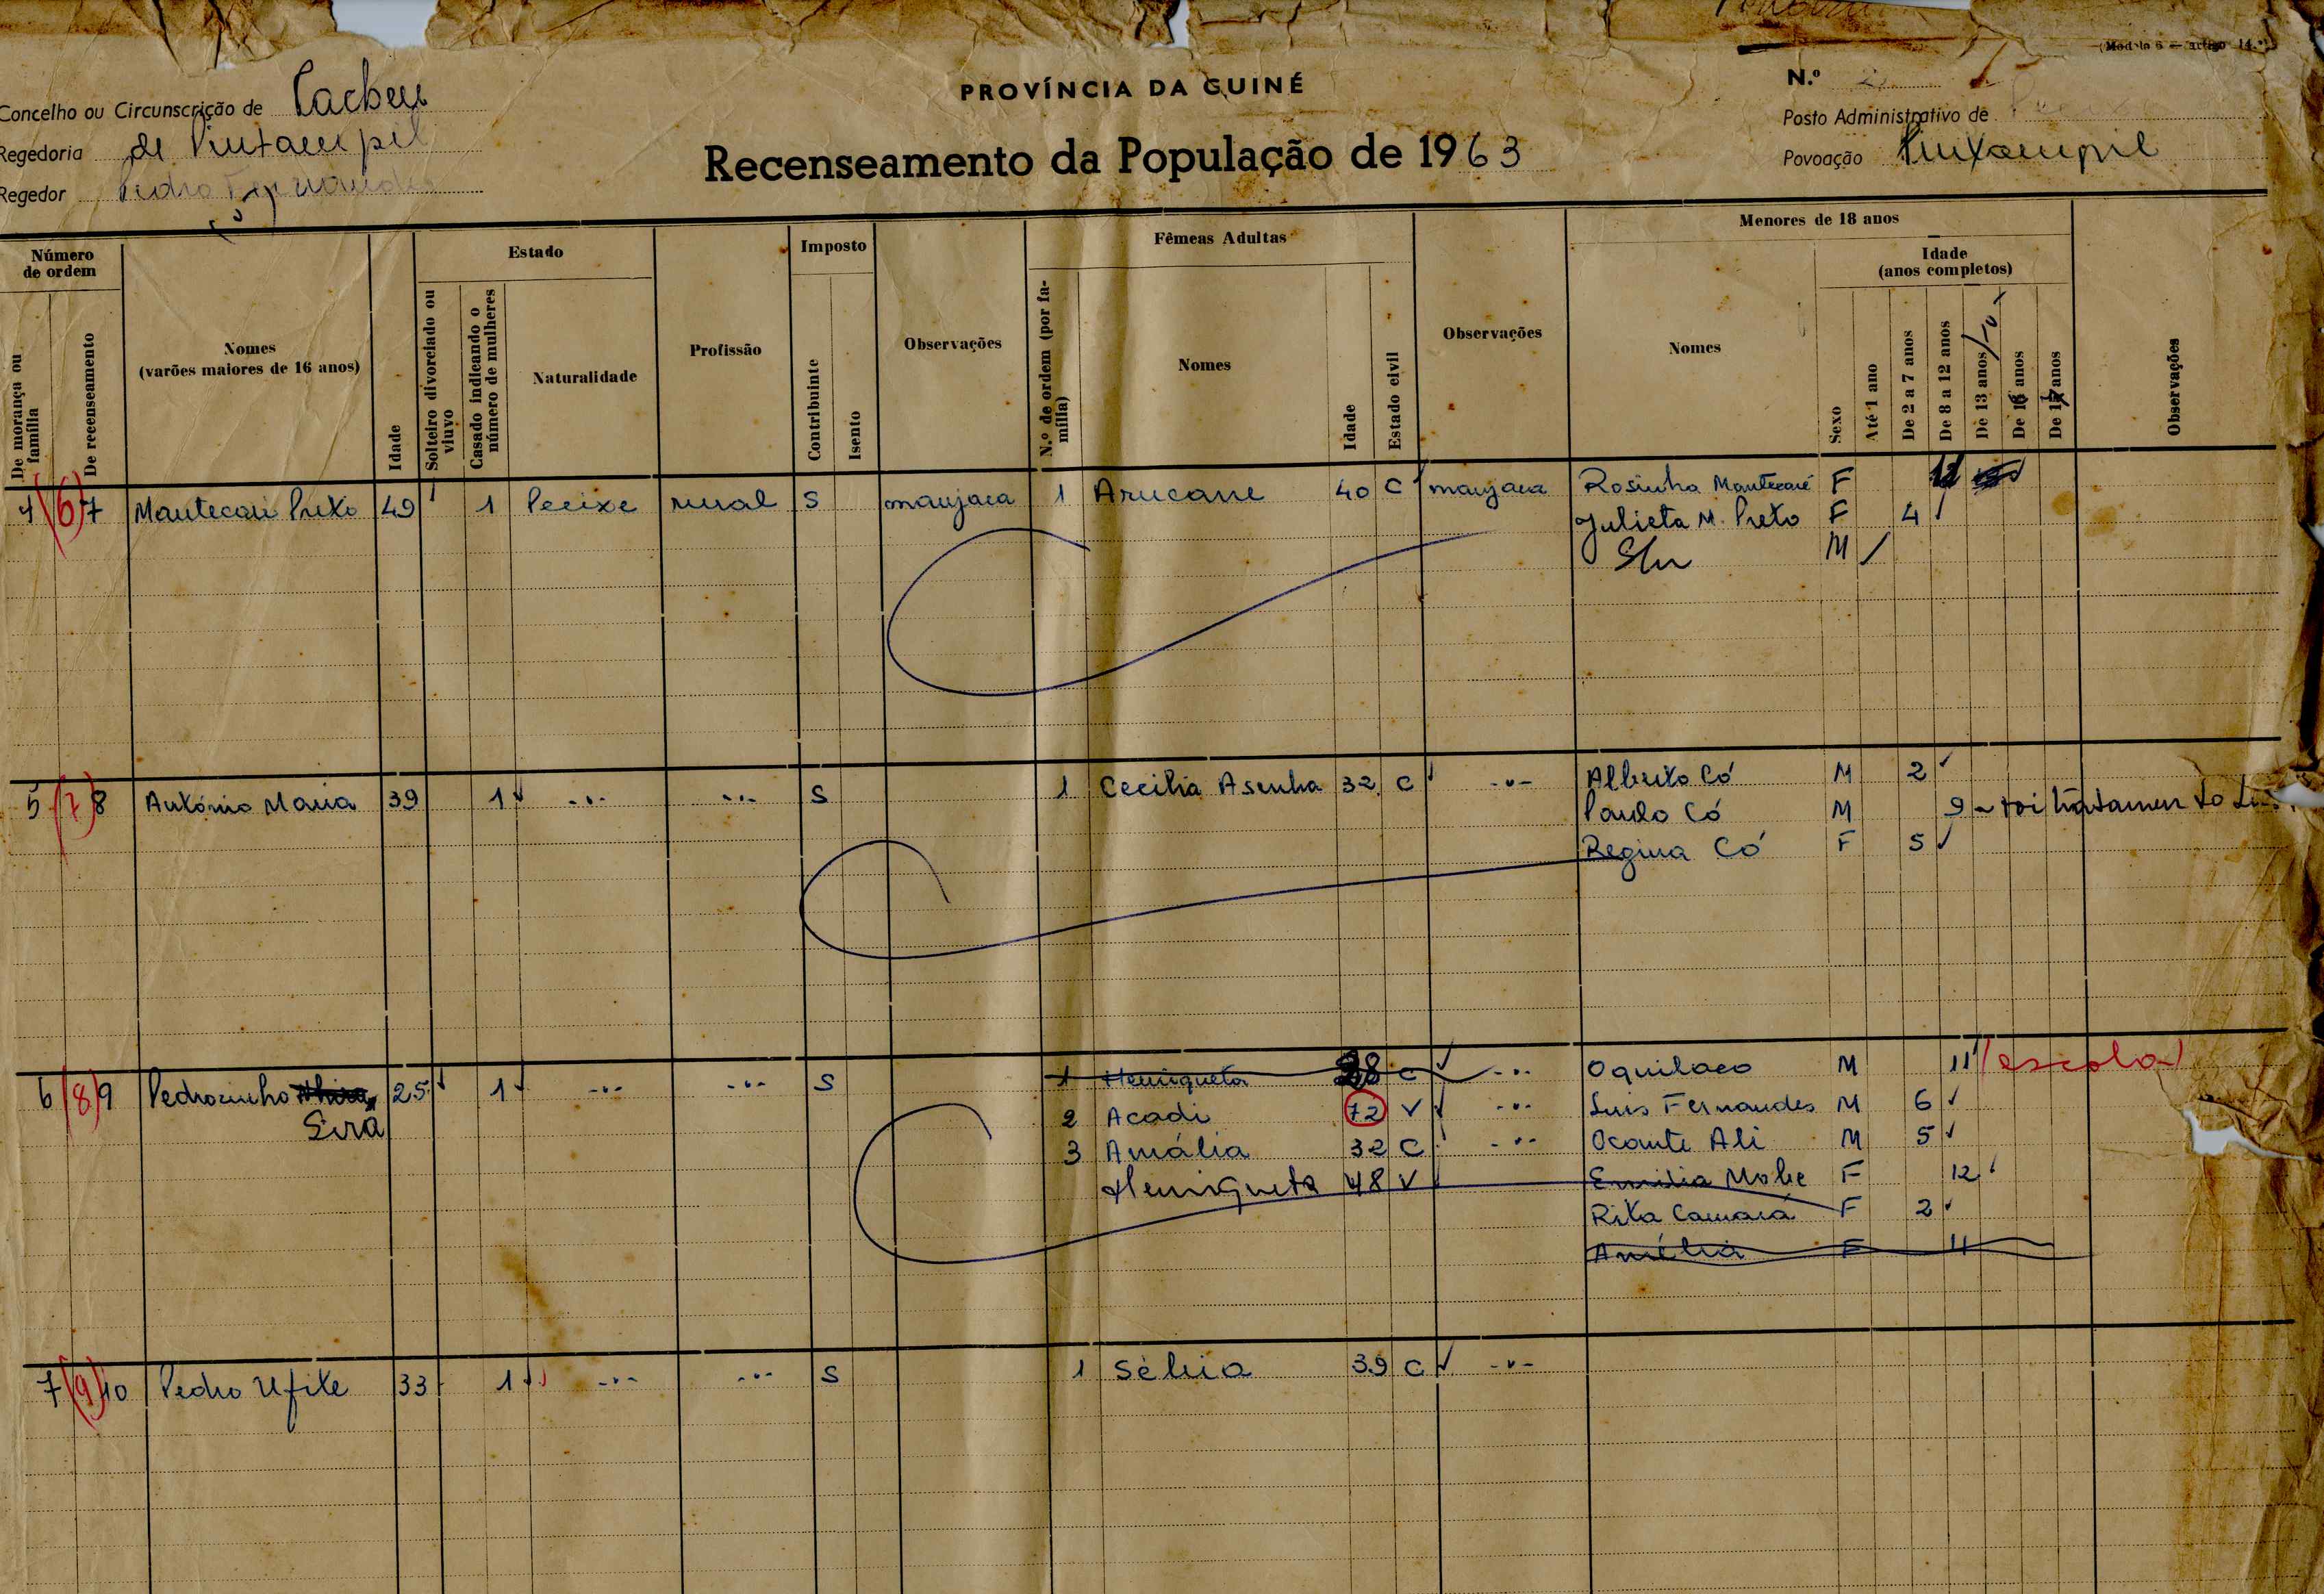 (Modelo 6 — artigo 14.º)
PROVÍNCIA DA GUINÉ
N.º 2
Concelho ou Circunscrição de Cacheu
Posto Administrativo de Pecixe
Regedoria de
Recenseamento da População de 1963
Povoação
Regedor Pedro Fernandes
Número de ordem
De morança ou família
De recenseamento
Nomes
(varões maiores de 16 anos)
Idade
Estado
Solteiro divorciado ou viuvo
Casado indicando o número de mulheres
Naturalidade
Profissão
Imposto
Contribuinte
Isento
Observações
Fêmeas Adultas
N.º de ordem (por família)
Nomes
Idade
Estado civil
Observações
Menores de 18 anos
Nomes
Sexo
Idade
(anos completos)
Até 1 ano
De 2 a 7 anos
De 8 a 12 anos
De 13 anos
De 16 anos
De 17 anos
Observações
4 (6) 7 Mantecari Preto 49 1 Pecixe rural S manjaca 1 Arucane 40 C manjaca Rosinha Mantecaré F 12
Julieta M. Preto F 4
S/n M
5 (7) 8 António Maria 39 1 -"- -"- S 1 Cecilia Asenha 32 C -"- Alberto Có M 2
Paulo Có M 9 - foi tratamento
Regina Có F 5
6 (8) 9 Pedrozinho 25 1 -"- -"- S 1 Henriqueta 38 C -"- Oquilaco M 11 (escola)
Eira 2 Acadi 72 V -"- Luis Fernandes M 6
3 Amália 32 C -"- Ocante Ali M 5
Henriqueta 48 V Emilia Mobe F 12
Rita Camará F 2
Amélia F 11
7 (9) 10 Pedro Ufite 33 1 -"- -"- S 1 Sábia 39 C -"-